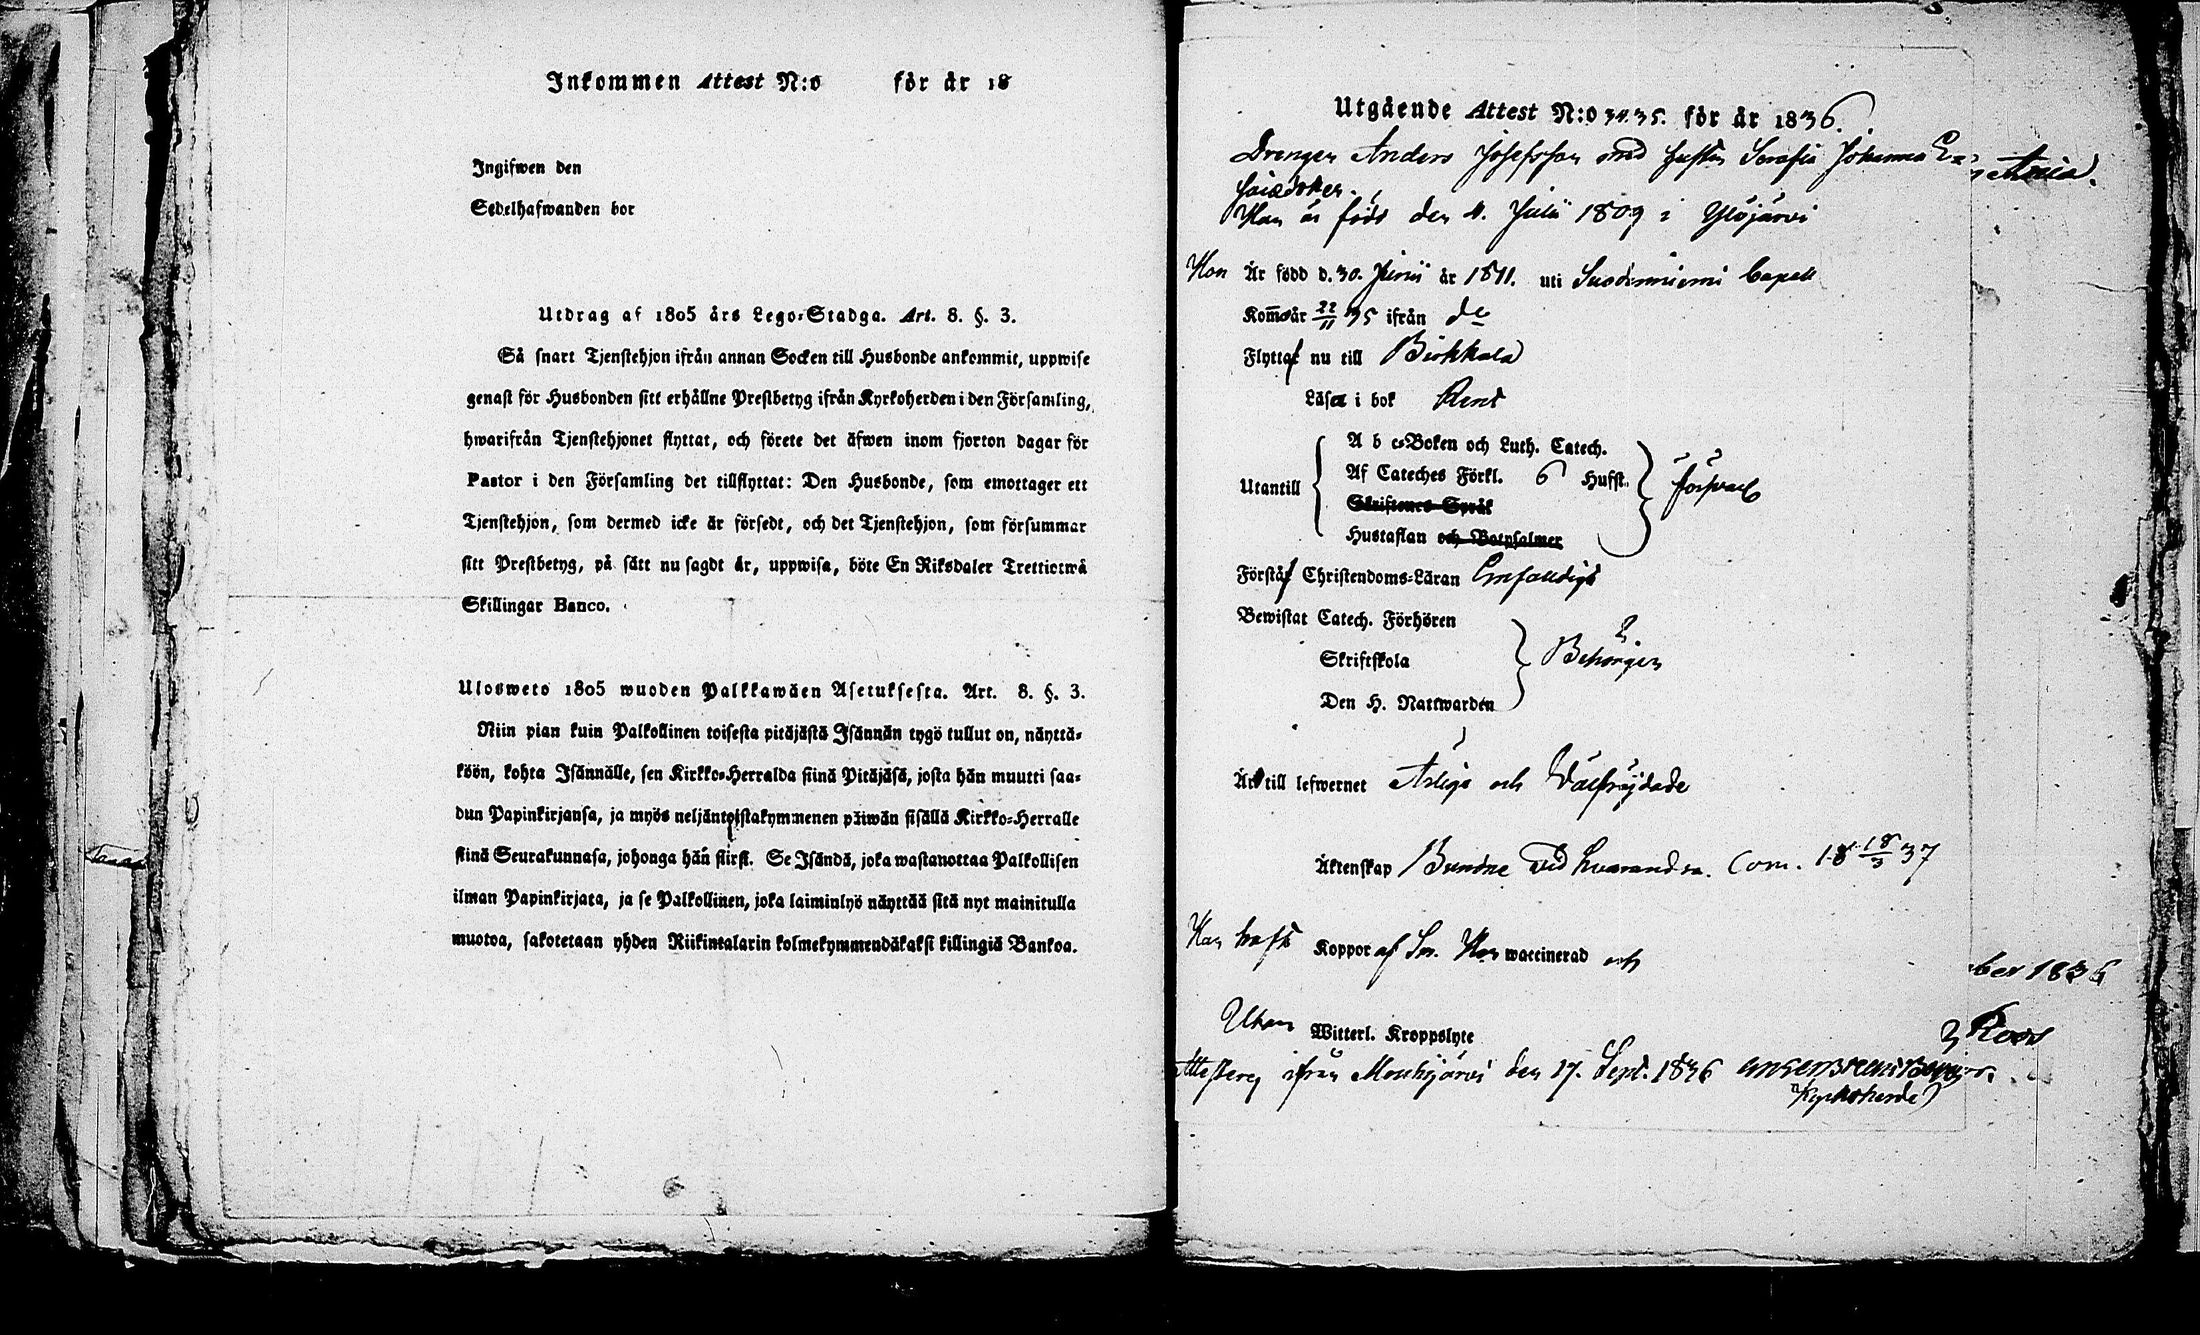 Inkommen Attest N:o för år 18
Ingifwen den
Sedelhafwanden bor
Utdrag af 1805 års Lego-Stadga. Art. 8. §. 3.
Så snart Tjenstehjon ifrån annan Socken till Husbonde ankommit, uppwise
genast för Husbonden sitt erhållne Prestbetyg ifrån Kyrkoherden i den Församling,
hwarifrån Tjenstehjonet flyttat, och förete det äfwen inom fjorton dagar för
Pastor i den Församling det tillflyttat: Den Husbonde, som emottager ett
Tjenstehjon, som dermed icke är försedt, och det Tjenstehjon, som försummar
sitt Prestbetyg, på sätt nu sagdt är, uppwisa, böte En Riksdaler Trettiotwå
Skillingar Banco.
Ulosweto 1805 wuoden Palkkawäen Asetuksesta. Art. 8. §. 3.
Niin pian kuin Palkollinen toisesta pitäjästä Isännän tygö tullut on, näyttä-
köön, kohta Isännälle, sen Kirkko-Herralda siinä Pitäjäsä, josta hän muutti saa-
dun Papinkirjansa, ja myös neljäntoistakymmenen päiwän sisällä Kirkko-Herralle
siinä Seurakunnasa, johonga hän siirst. Se Isändä, joka wastanottaa Palkollisen
ilman Papinkirjata, ja se Palkollinen, joka laiminlyö näyttää sitä nyt mainitulla
muotoa, sakotetaan yhden Riikintalarin kolmekymmendäkaksi killingiä Bankoa.
Utgående Attest N:o 34.35. för år 1836.
Drengen Anders Josefsson med hustru Serafia Johanna
Han är född den 4. Julii 1809 i Ylöjärvi
Hon Är född d. 30. Junii år 1811. uti Suodenniemi Capell
Kom̄o år 22/11 35 ifrån de
Flytta nu till Birkkala
Läsa i bok Rent
A b c-Boken och Luth. Catech.
Af Cateches Förkl. 6 Hufst.
Utantill försvarl
Skriftenes Språk
Hustaflan och Botpsalmer
Förstå Christendoms-Läran Enfaldigt
Bewistat Catech. Förhören
Skriftskola Behörigen
Den H. Nattwarden
Är till lefwernet Ärliga och Välfrejdade
Äktenskap Bundne vid hvarandra. Com. 18 18/3 37
Han haft Koppor af Sn. Hon waccinerad och
ber 1836
Utan Witterl. Kroppslyte
Roos
Attesterg ifrån Mouhijärvi den 17. Sept. 1836
Kyrkoherde